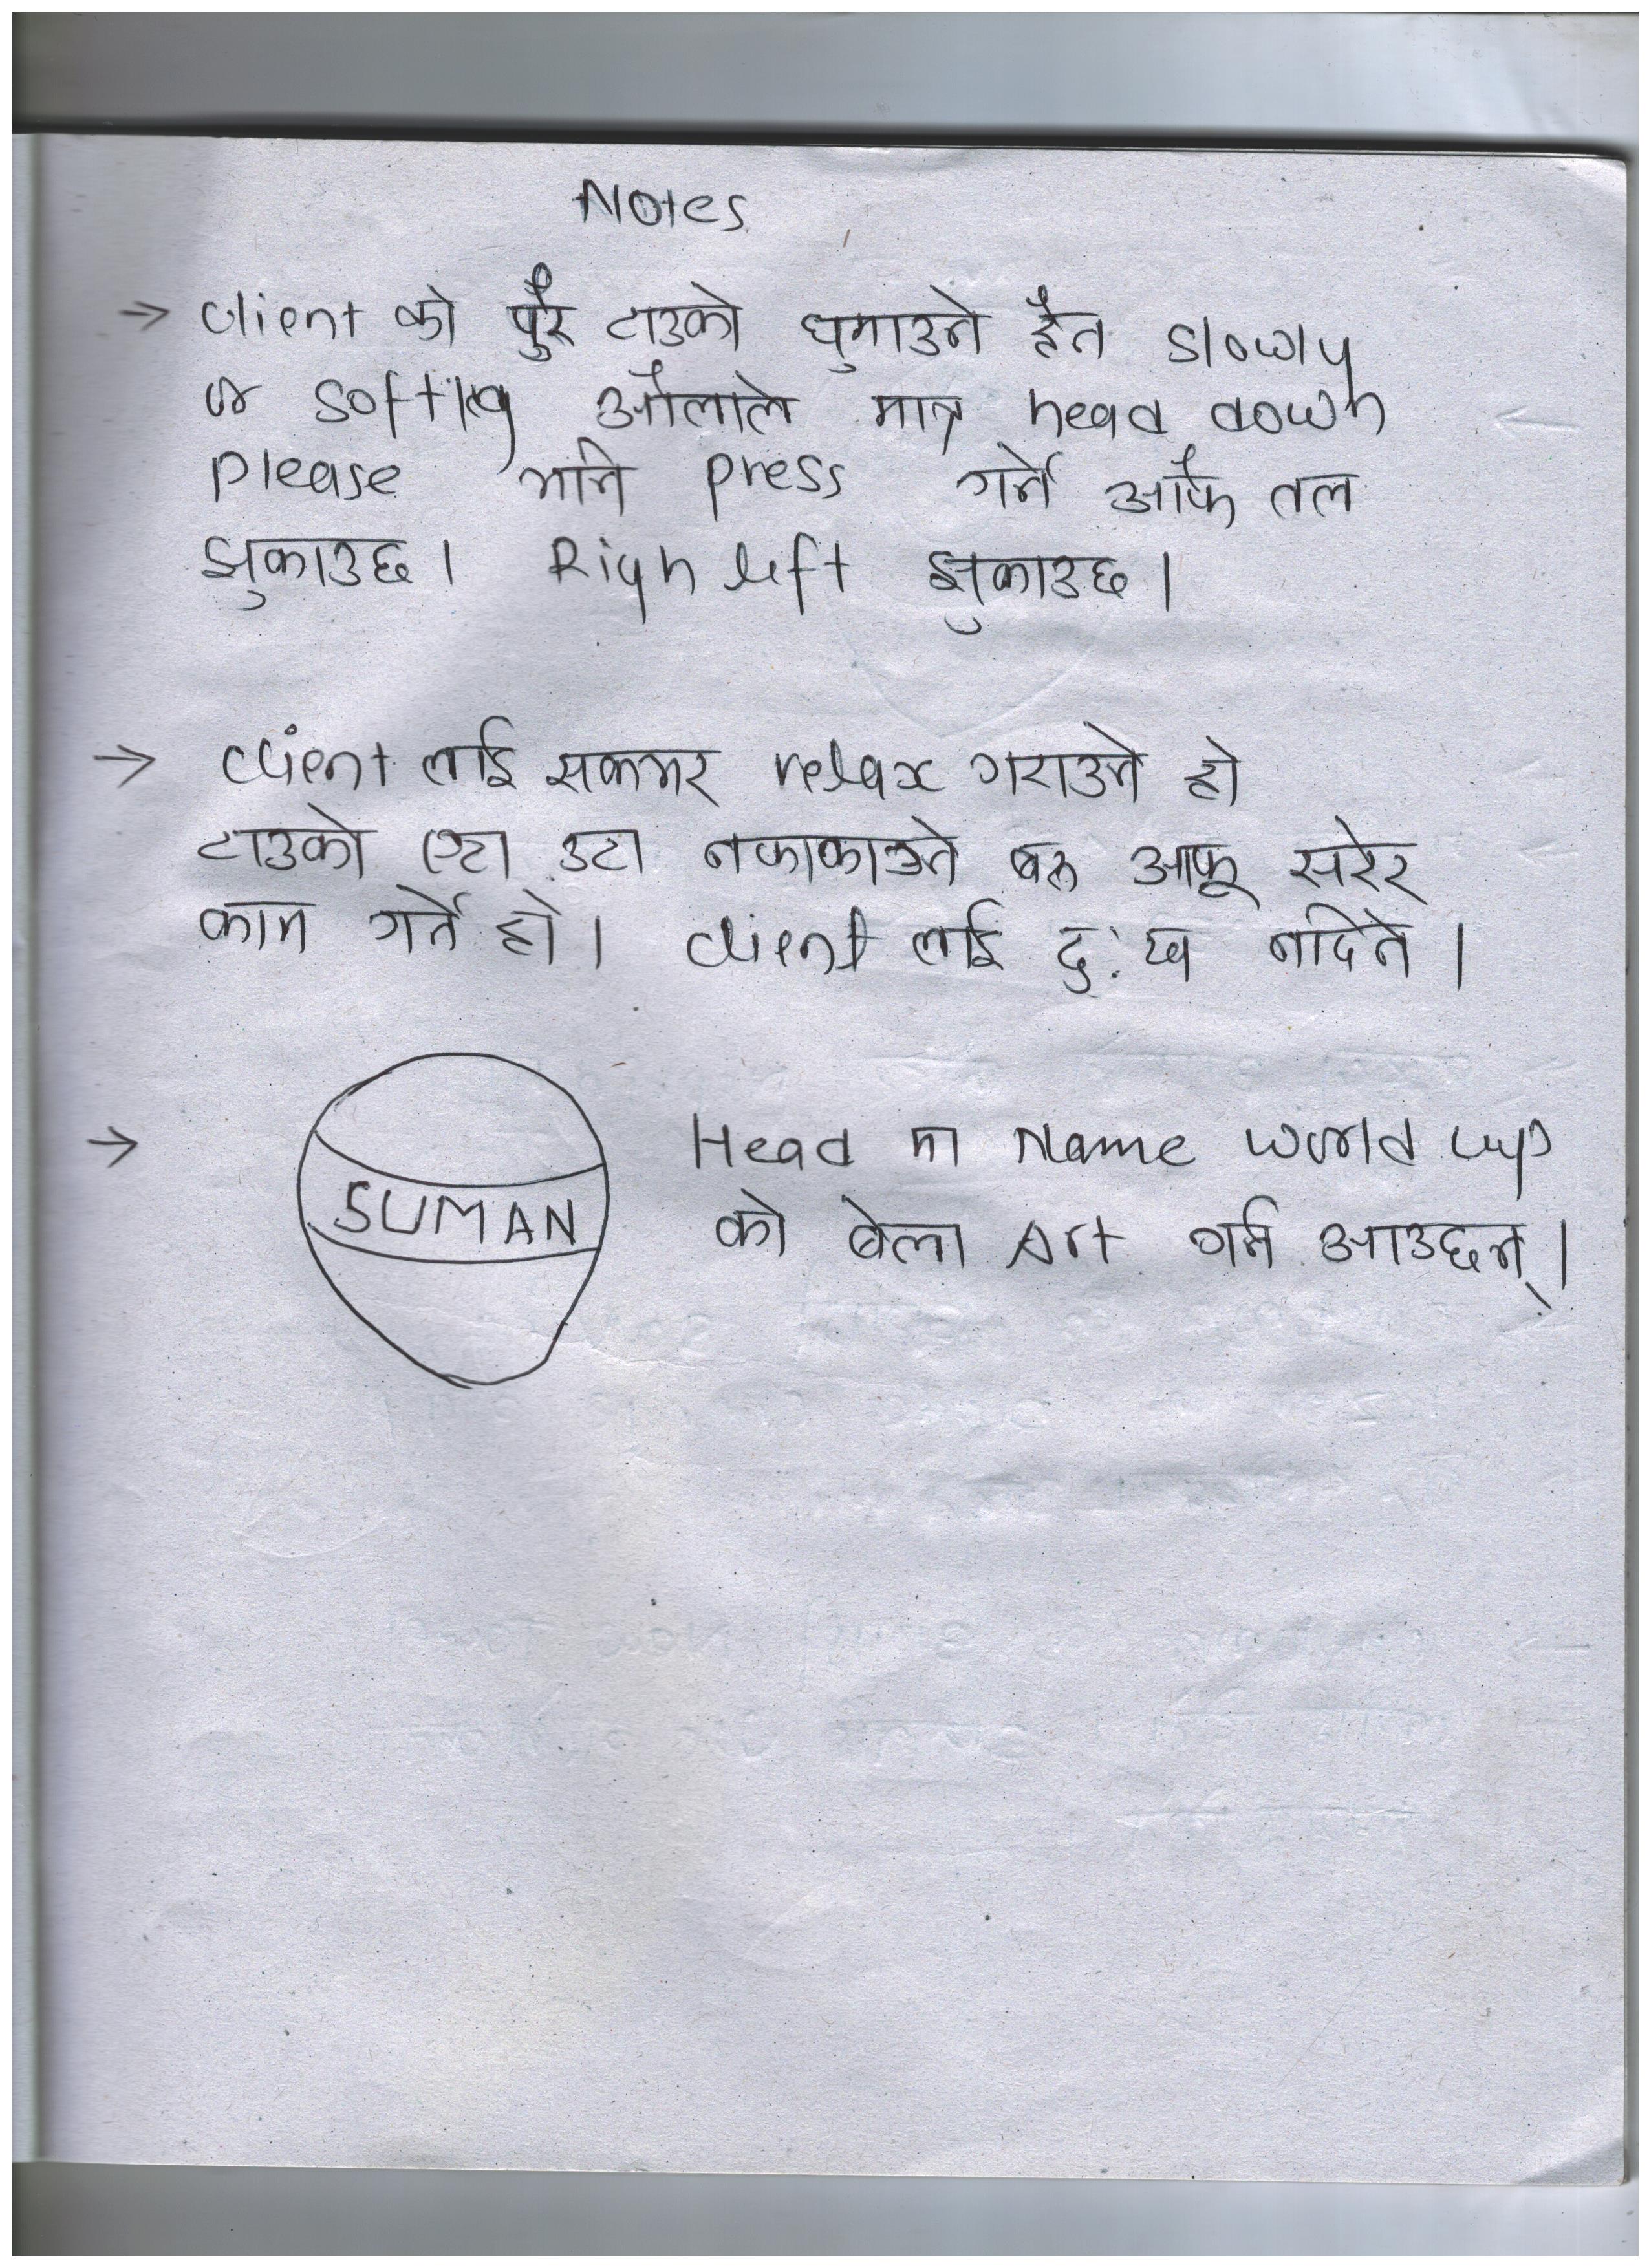 Notes
→ Client को पुरै टाउको घुमाउने हैन slowly
or softlly औलाले मात्र head down
please भनि press गर्ने आफै तल
झुकाउछ। Righ left झुकाउछ।
→ Client लाई सकभर relax गराउने हो
टाउको एता उता नफाकाउने बरु आफू सरेर
काम गर्ने हो। Client लाई दुःख नदिने।
→ SUMAN Head मा Name world cup
को बेला Art गर्न आउछन्।